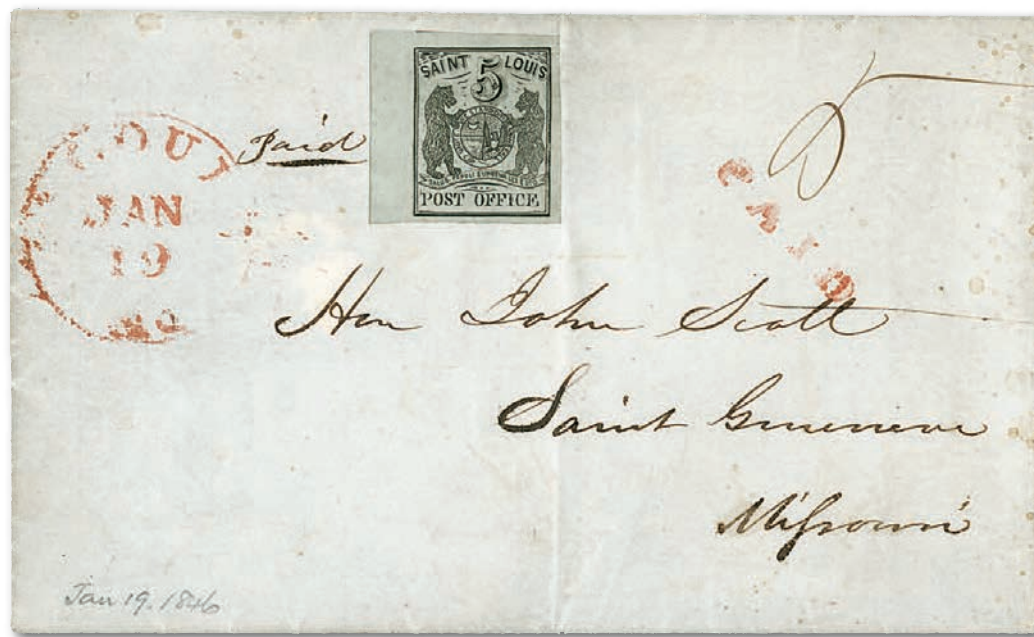 SAINT LOUIS
5
POST OFFICE
Paid
LOUI
JAN
19
MO
PAID
Hon John Scott
Saint Genevieve
Missouri
Jan 19. 1846